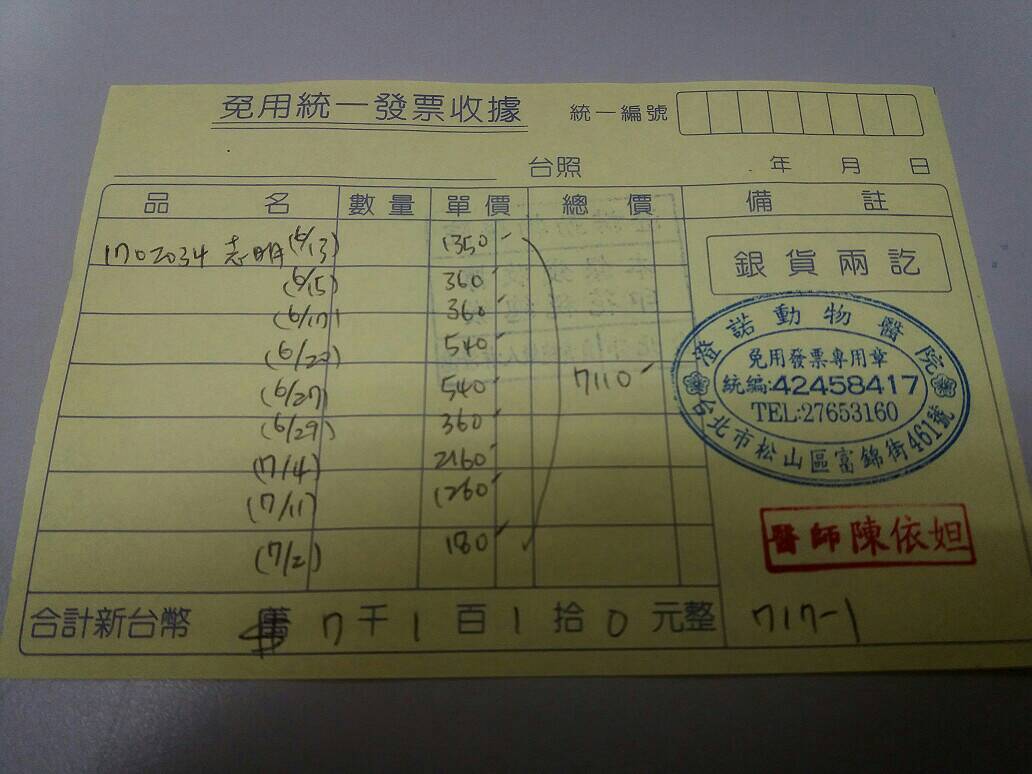 免用統一發票收據 統一編號
台照 年 月 日
品名 數量 單價 總價 備註
1702034 志明 (6/13) 1350
(6/15) 360
(6/17) 360
(6/22) 540
(6/27) 540 7110
(6/29) 360
(7/4) 2160
(7/11) 1260
(7/2) 180
合計新台幣 萬 7 千 1 百 1 拾 0 元整 717-1
銀貨兩訖
澄諾動物醫院
免用發票專用章
統編:42458417
TEL:27653160
台北市松山區富錦街461號
醫師陳依妲